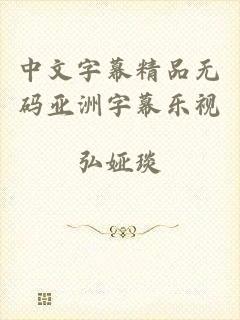 中文字幕精品无
码亚洲字幕乐视
弘娅琰